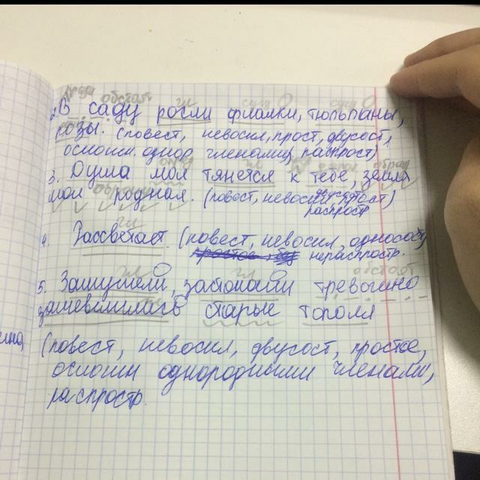 обстоят
2. В саду росли фиалки, тюльпаны,
розы. (повест, невоскл, прост, двусост,
осложн. однор членами, распрост)
3. Душа моя тянется к тебе, земля
моя родная. (повест, невоскл, двусост
распростр
4. Рассветает (повест, невоскл, односост
простое, нераспростр.
обстоят
5. Зашумели, забо тревожно
зашевелились старые тополя
(повест, невоскл, двусост, простое,
осложн однородными членами,
распростр